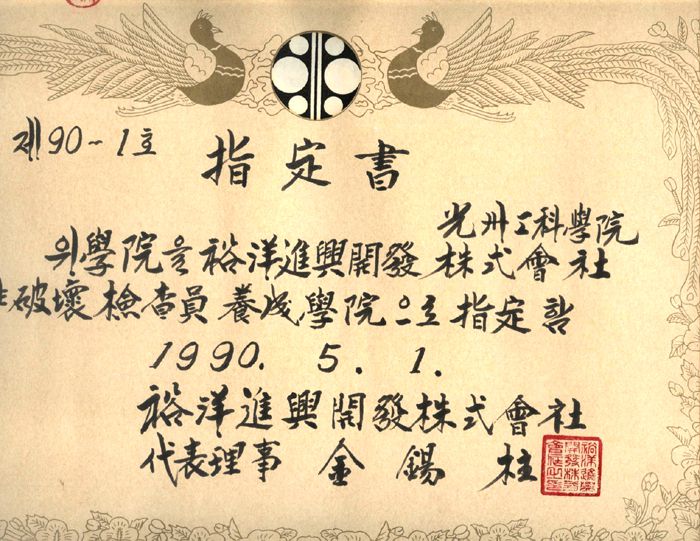 제 90-1호
指定書
光州工科學院
위學院을 裕洋進興開發 株式會社
破壞檢査員 養成學院으로 指定함
1990. 5. 1.
裕洋進興開發株式會社
代表理事 金錫柱